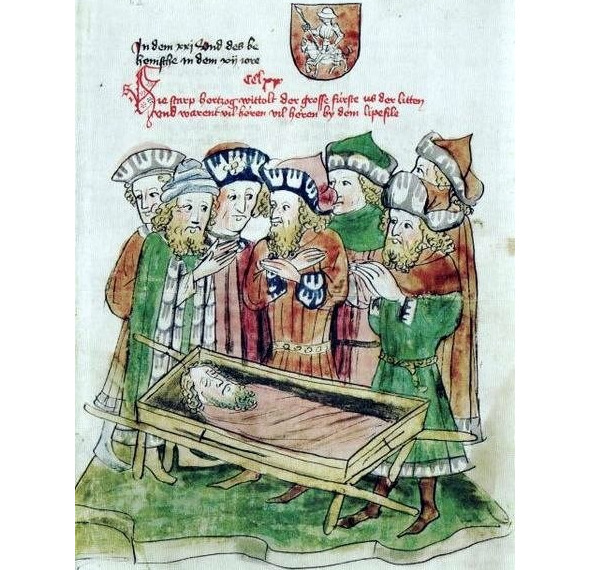 In dem xxj Jond des ke
homsthe in dem xij iore
Cclxx
Hie starp hertzog wittolt der grosse fürste us der litten
vnd warent vil heren vil heren by dem lipefile